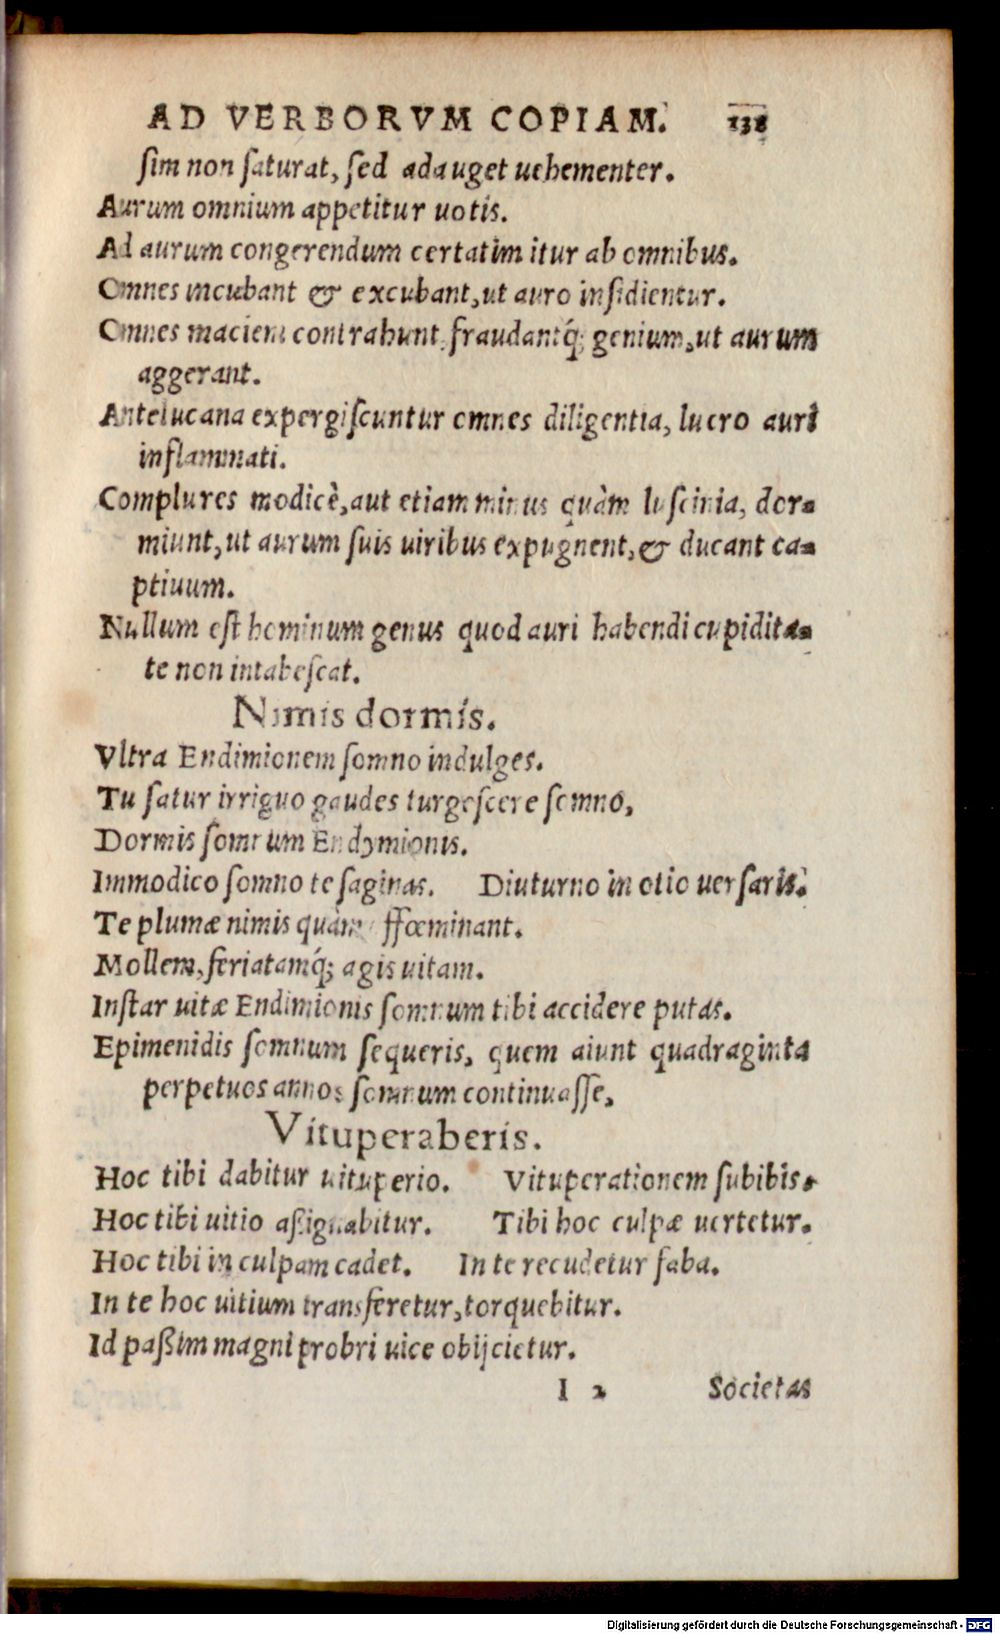 AD VERBORVM COPIAM. 138
ſim non ſaturat, ſed adauget uehementer.
Aurum omnium appetitur uotis.
Ad aurum congerendum certatim itur ab omnibus.
Omnes incubant & excubant, ut auro inſidientur.
Omnes maciem contrahunt, fraudantq́; genium, ut aurum
aggerant.
Antelucana expergiſcuntur omnes diligentia, lucro auri
inflammati.
Complures modicè, aut etiam minus quàm luſcinia, dor-
miunt, ut aurum ſuis uiribus expugnent, & ducant ca-
ptiuum.
Nullum eſt hominum genus quod auri habendi cupidita-
te non intabeſcat.
Nimis dormis.
Vltra Endimionem ſomno indulges.
Tu ſatur irriguo gaudes turgeſcere ſomno,
Dormis ſomnum Endymionis.
Immodico ſomno te ſaginas. Diuturno in otio uerſaris.
Te plumæ nimis quàm effœminant.
Mollem, feriatamq́; agis uitam.
Inſtar uitæ Endimionis ſomnum tibi accidere putas.
Epimenidis ſomnum ſequeris, quem aiunt quadraginta
perpetuos annos ſomnum continuaſſe,
Vituperaberis.
Hoc tibi dabitur uituperio. Vituperationem ſubibis.
Hoc tibi uitio aßignabitur. Tibi hoc culpæ uertetur.
Hoc tibi in culpam cadet. In te recudetur faba.
In te hoc uitium transferetur, torquebitur.
Id paßim magni probri uice obijcietur.
I 2 Societas
Digitalisierung gefördert durch die Deutsche Forschungsgemeinschaft - DFG